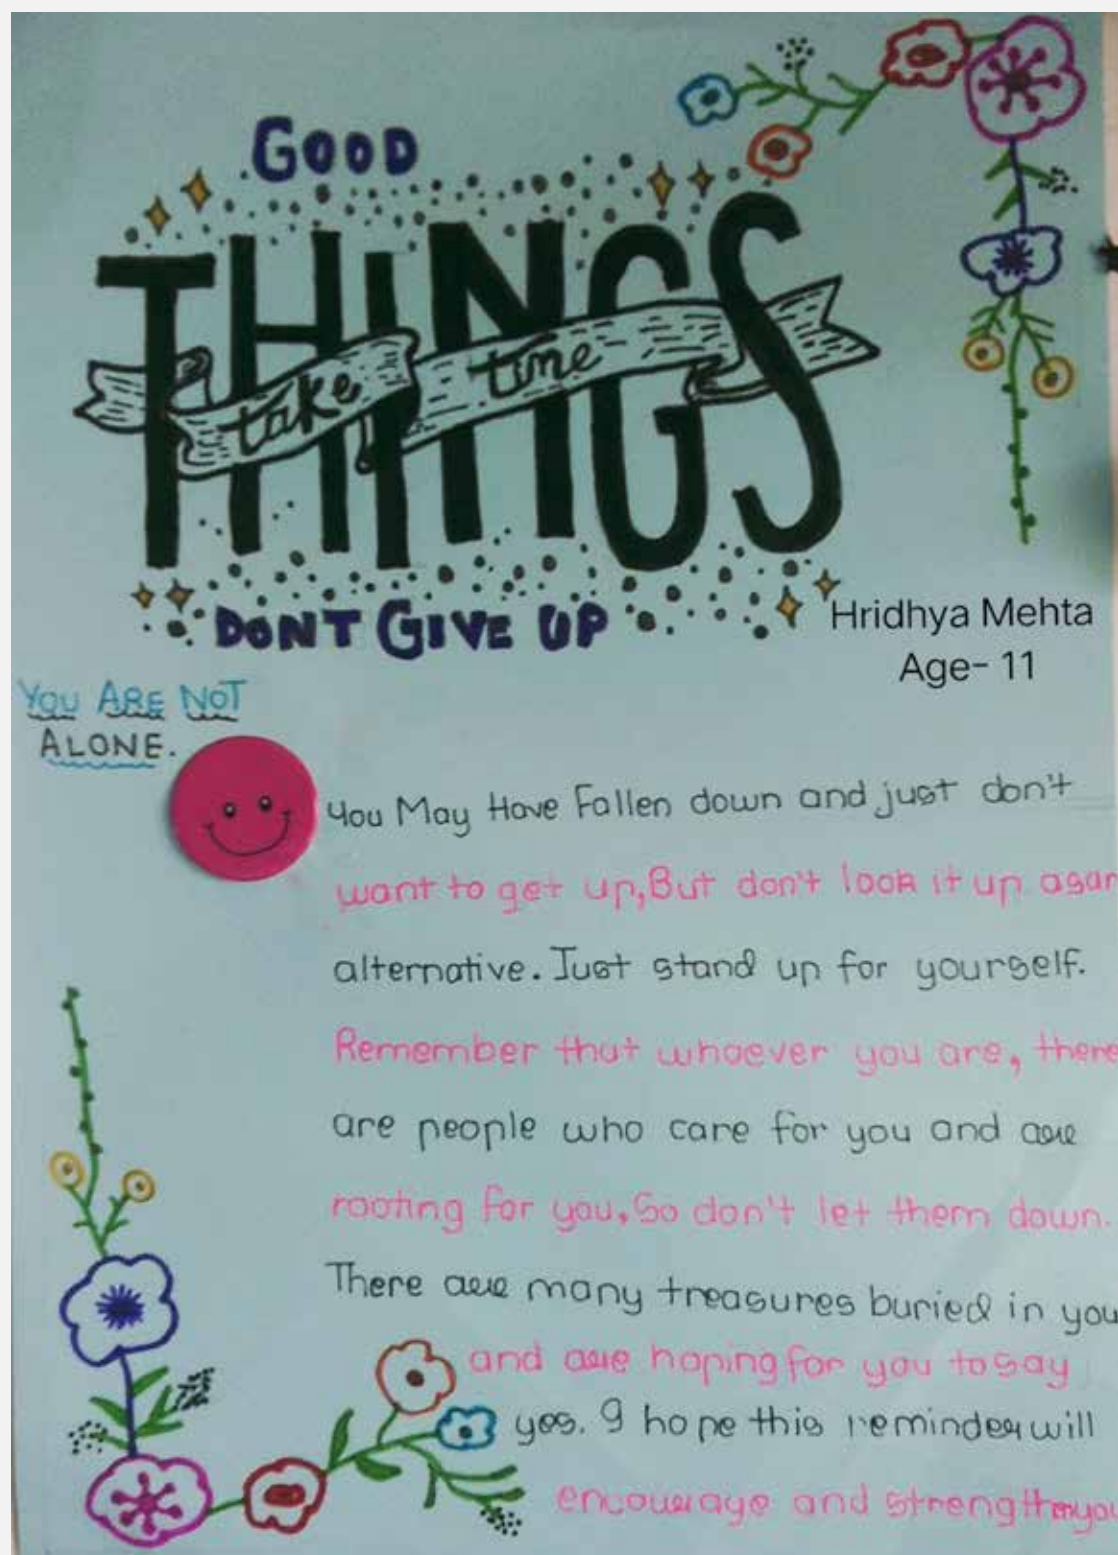 GOOD
THINGS
take time
DONT GIVE UP
Hridhya Mehta
Age- 11
YOU ARE NOT
ALONE.
You May Have Fallen down and just don't
want to get up,But don't look it up asan
alternative. Just stand up for yourself.
Remember that whoever you are, there
are people who care for you and are
rooting for you,So don't let them down.
There are many treasures buried in you
and are hoping for you to say
yes. I hope this reminder will
encourage and strengthen you